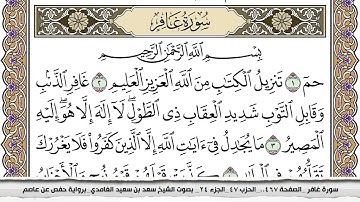 سُورَةُ غَافِرٍ
بِسْمِ اللَّهِ الرَّحْمَٰنِ الرَّحِيمِ
حمٓ ١ تَنزِيلُ الْكِتَٰبِ مِنَ اللَّهِ الْعَزِيزِ الْعَلِيمِ ٢ غَافِرِ الذَّنۢبِ
وَقَابِلِ التَّوْبِ شَدِيدِ الْعِقَابِ ذِى الطَّوْلِ ۖ لَآ إِلَٰهَ إِلَّا هُوَ ۖ إِلَيْهِ
الْمَصِيرُ ٣ مَا يُجَٰدِلُ فِىٓ ءَايَٰتِ اللَّهِ إِلَّا الَّذِينَ كَفَرُوا۟ فَلَا يَغْرُرْكَ
سورة غافر .. الصفحة ٤٦٧ .. الحزب ٤٧ .. الجزء ٢٤ .. بصوت الشيخ سعد بن سعيد الغامدي .. برواية حفص عن عاصم